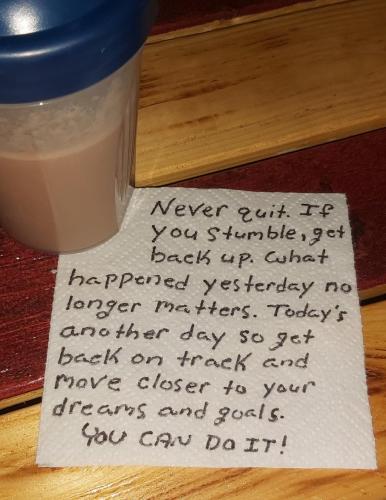 Never quit. If
you stumble, get
back up. What
happened yesterday no
longer matters. Today's
another day so get
back on track and
move closer to your
dreams and goals.
YOU CAN DO IT!